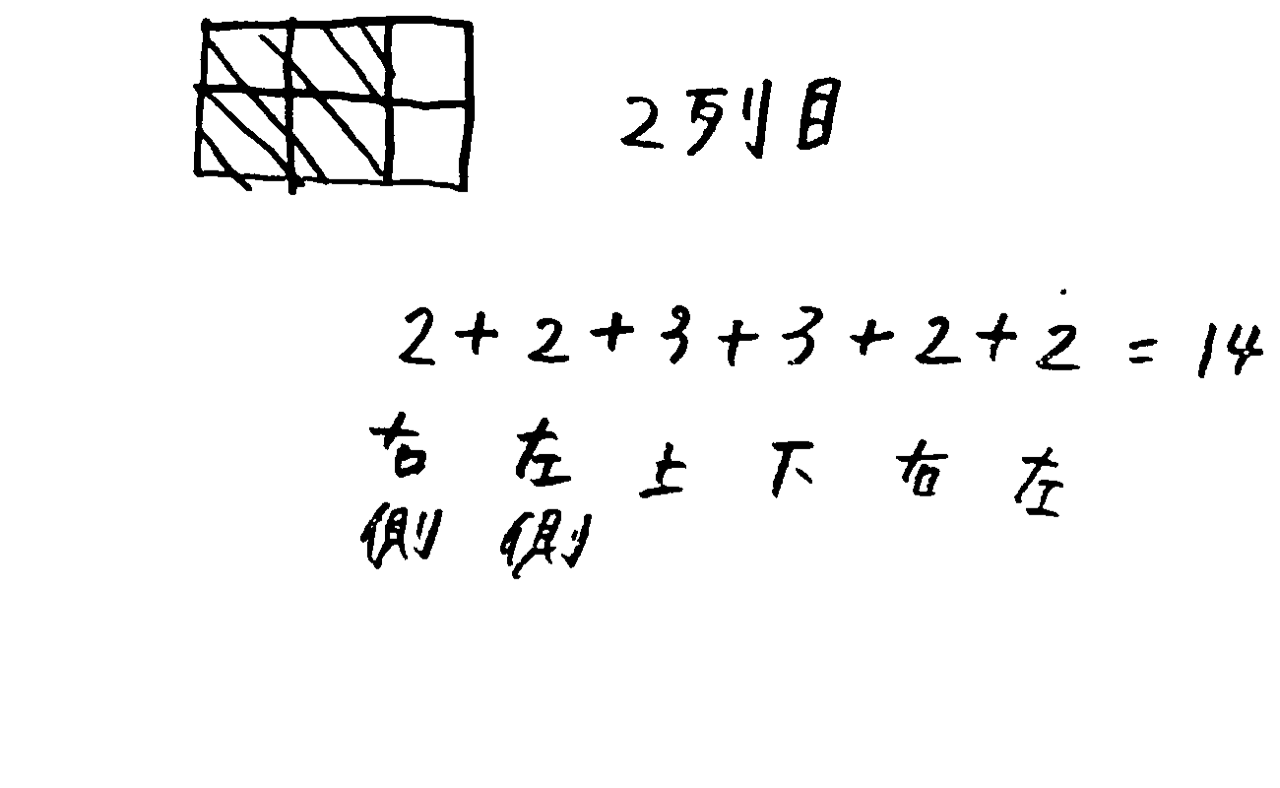 2列目
2+2+3+3+2+2=14
右 左 上 下 右 左
側 側